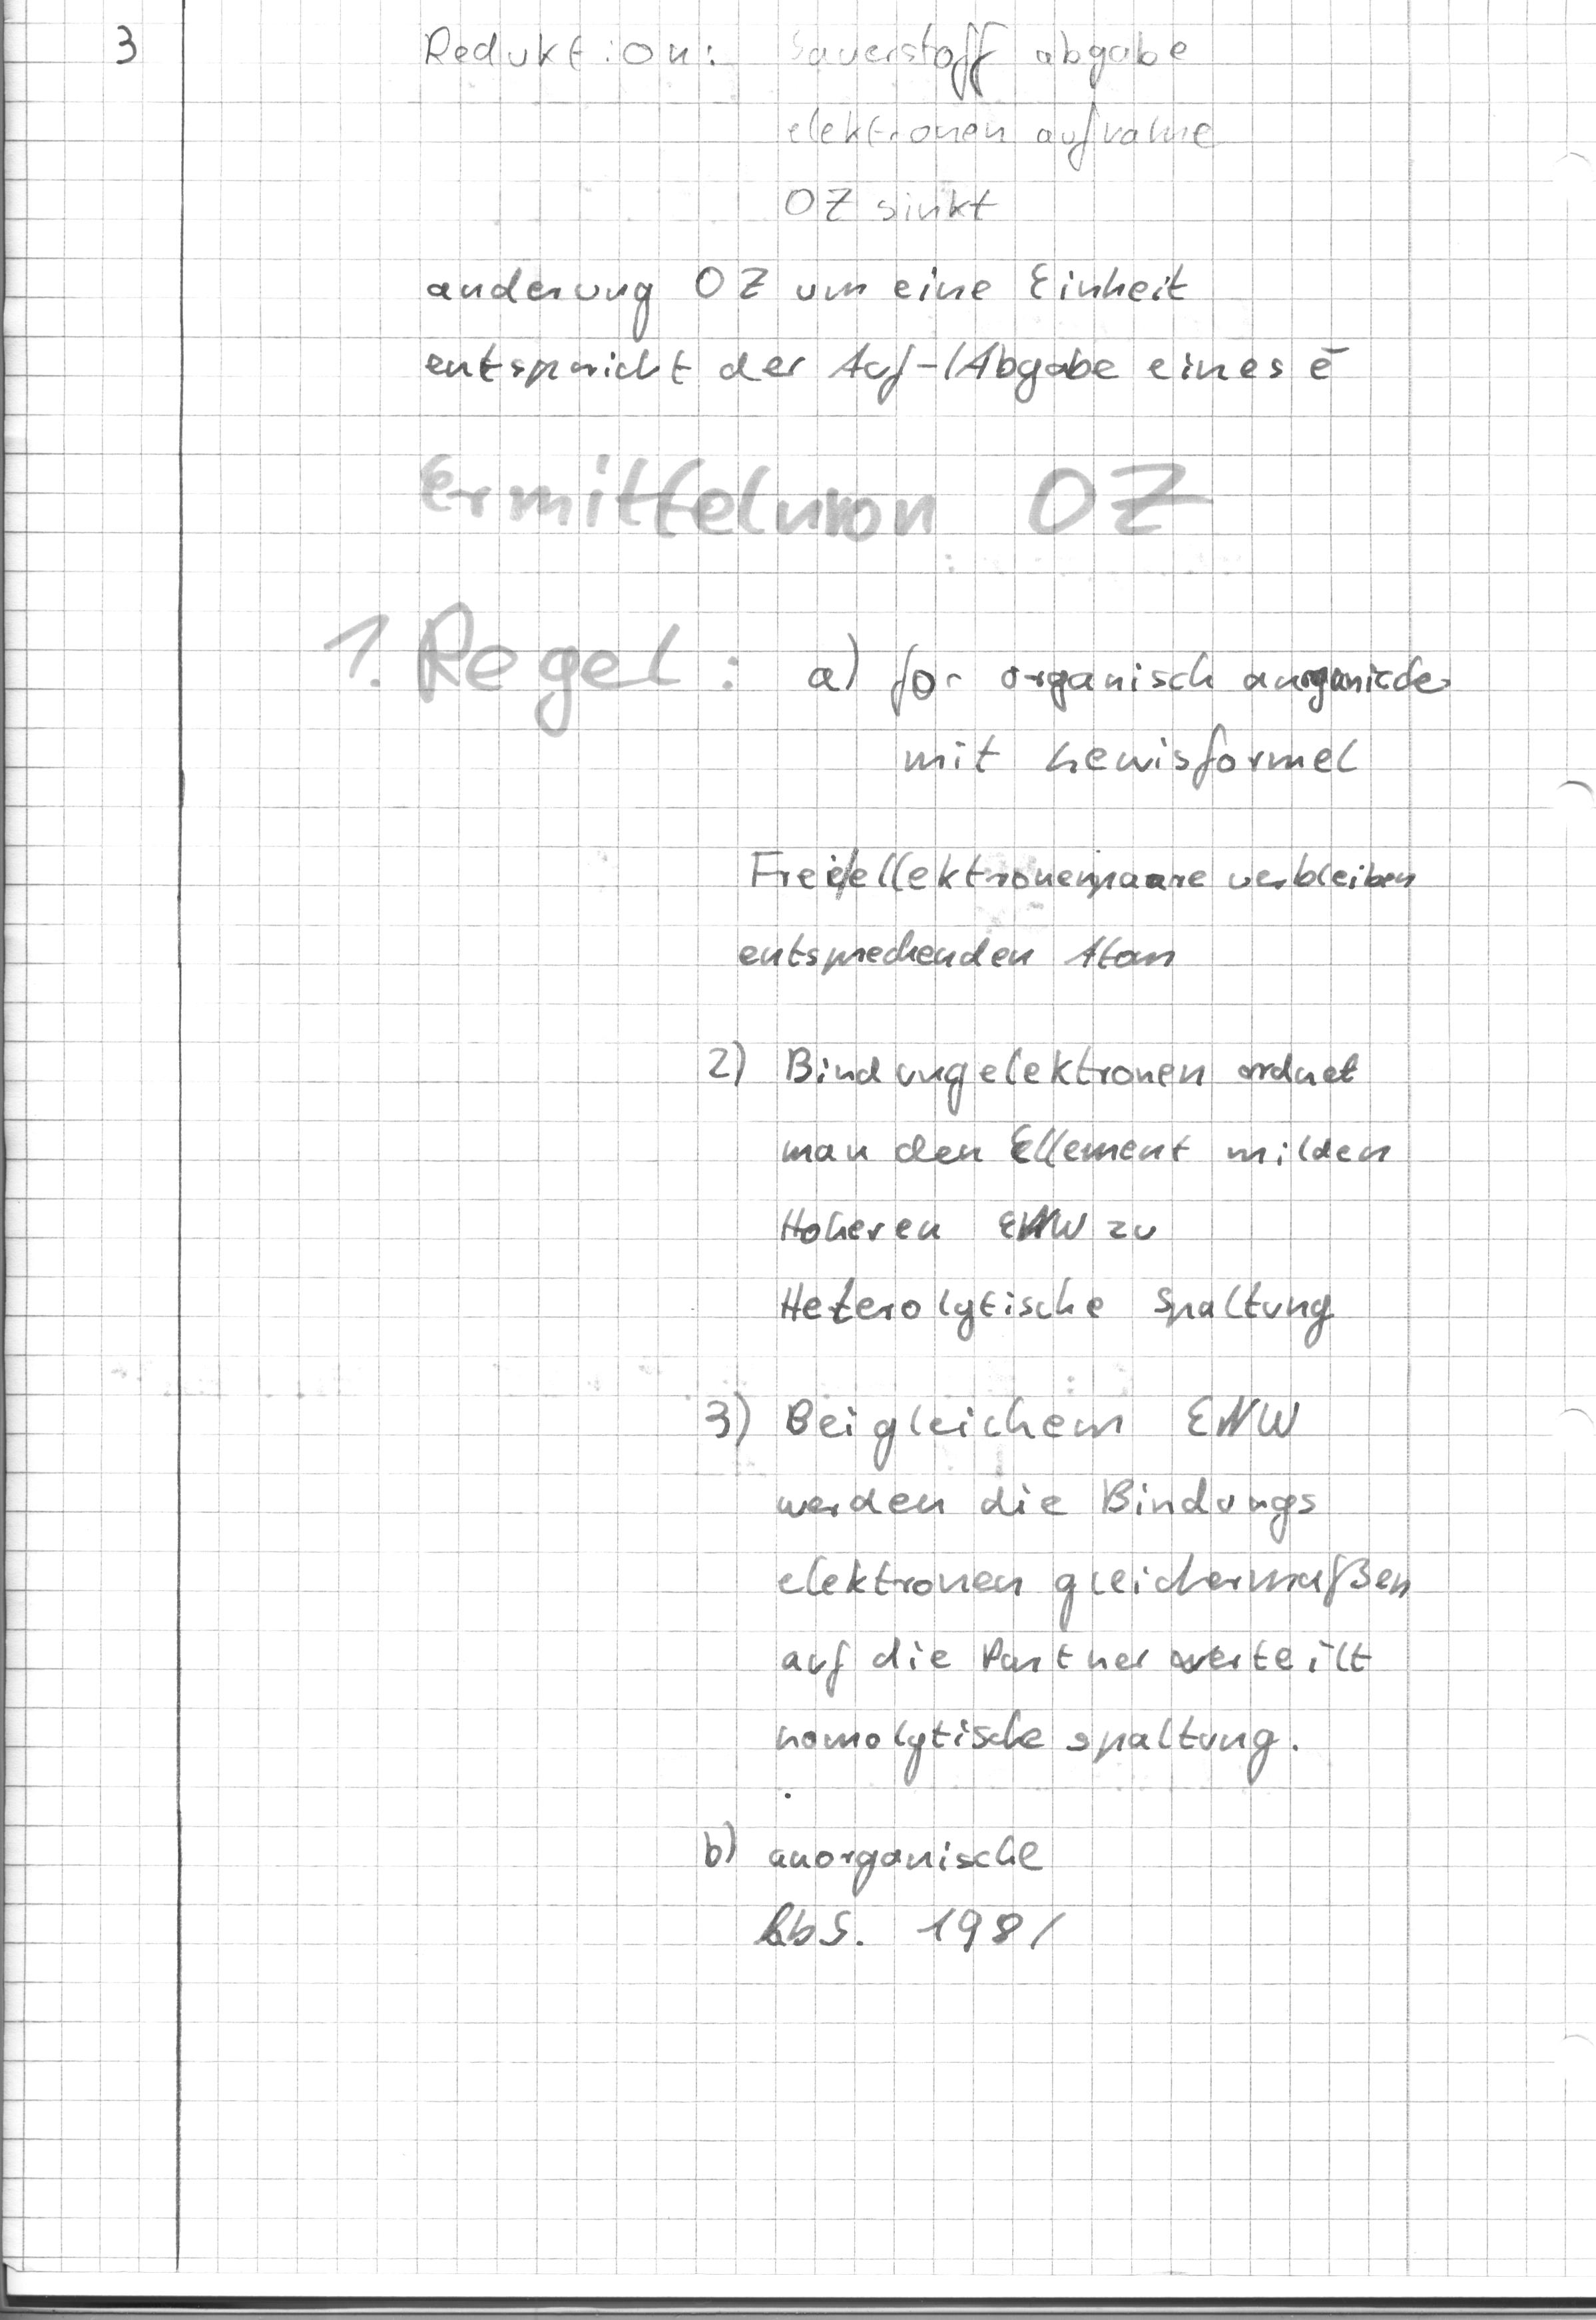 3
Reduktion: Sauerstoff abgabe
elektronen aufnahme
OZ sinkt
anderung OZ um eine Einheit
entspricht der Auf-/Abgabe eines e⁻
Ermittelung von OZ
1. Regel: a) for organisch anorganische
mit Lewisformel
Freie ellektronenpaare verbleiben
entsprechenden Atom
2) Bindungelektronen ordnet
man den Ellement mit den
Hoheren ENW zu
Heterolytische Spaltung
3) Bei gleichem ENW
werden die Bindungs
elektronen gleichermaßen
auf die Partner verteilt
homolytische spaltung.
b) anorganische
S. 198/